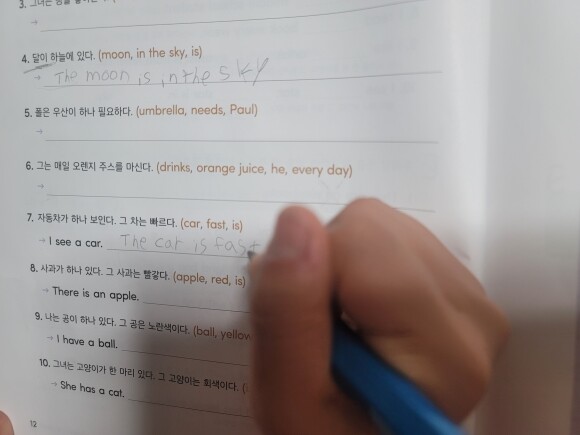 3. 그녀는
4. 달이 하늘에 있다. (moon, in the sky, is)
→ The moon is in the sky
5. 폴은 우산이 하나 필요하다. (umbrella, needs, Paul)
→
6. 그는 매일 오렌지 주스를 마신다. (drinks, orange juice, he, every day)
→
7. 자동차가 하나 보인다. 그 차는 빠르다. (car, fast, is)
→ I see a car. The car is fast
8. 사과가 하나 있다. 그 사과는 빨갛다. (apple, red, is)
→ There is an apple.
9. 나는 공이 하나 있다. 그 공은 노란색이다. (ball, yellow
→ I have a ball.
10. 그녀는 고양이가 한 마리 있다. 그 고양이는 회색이다. (
→ She has a cat.
12